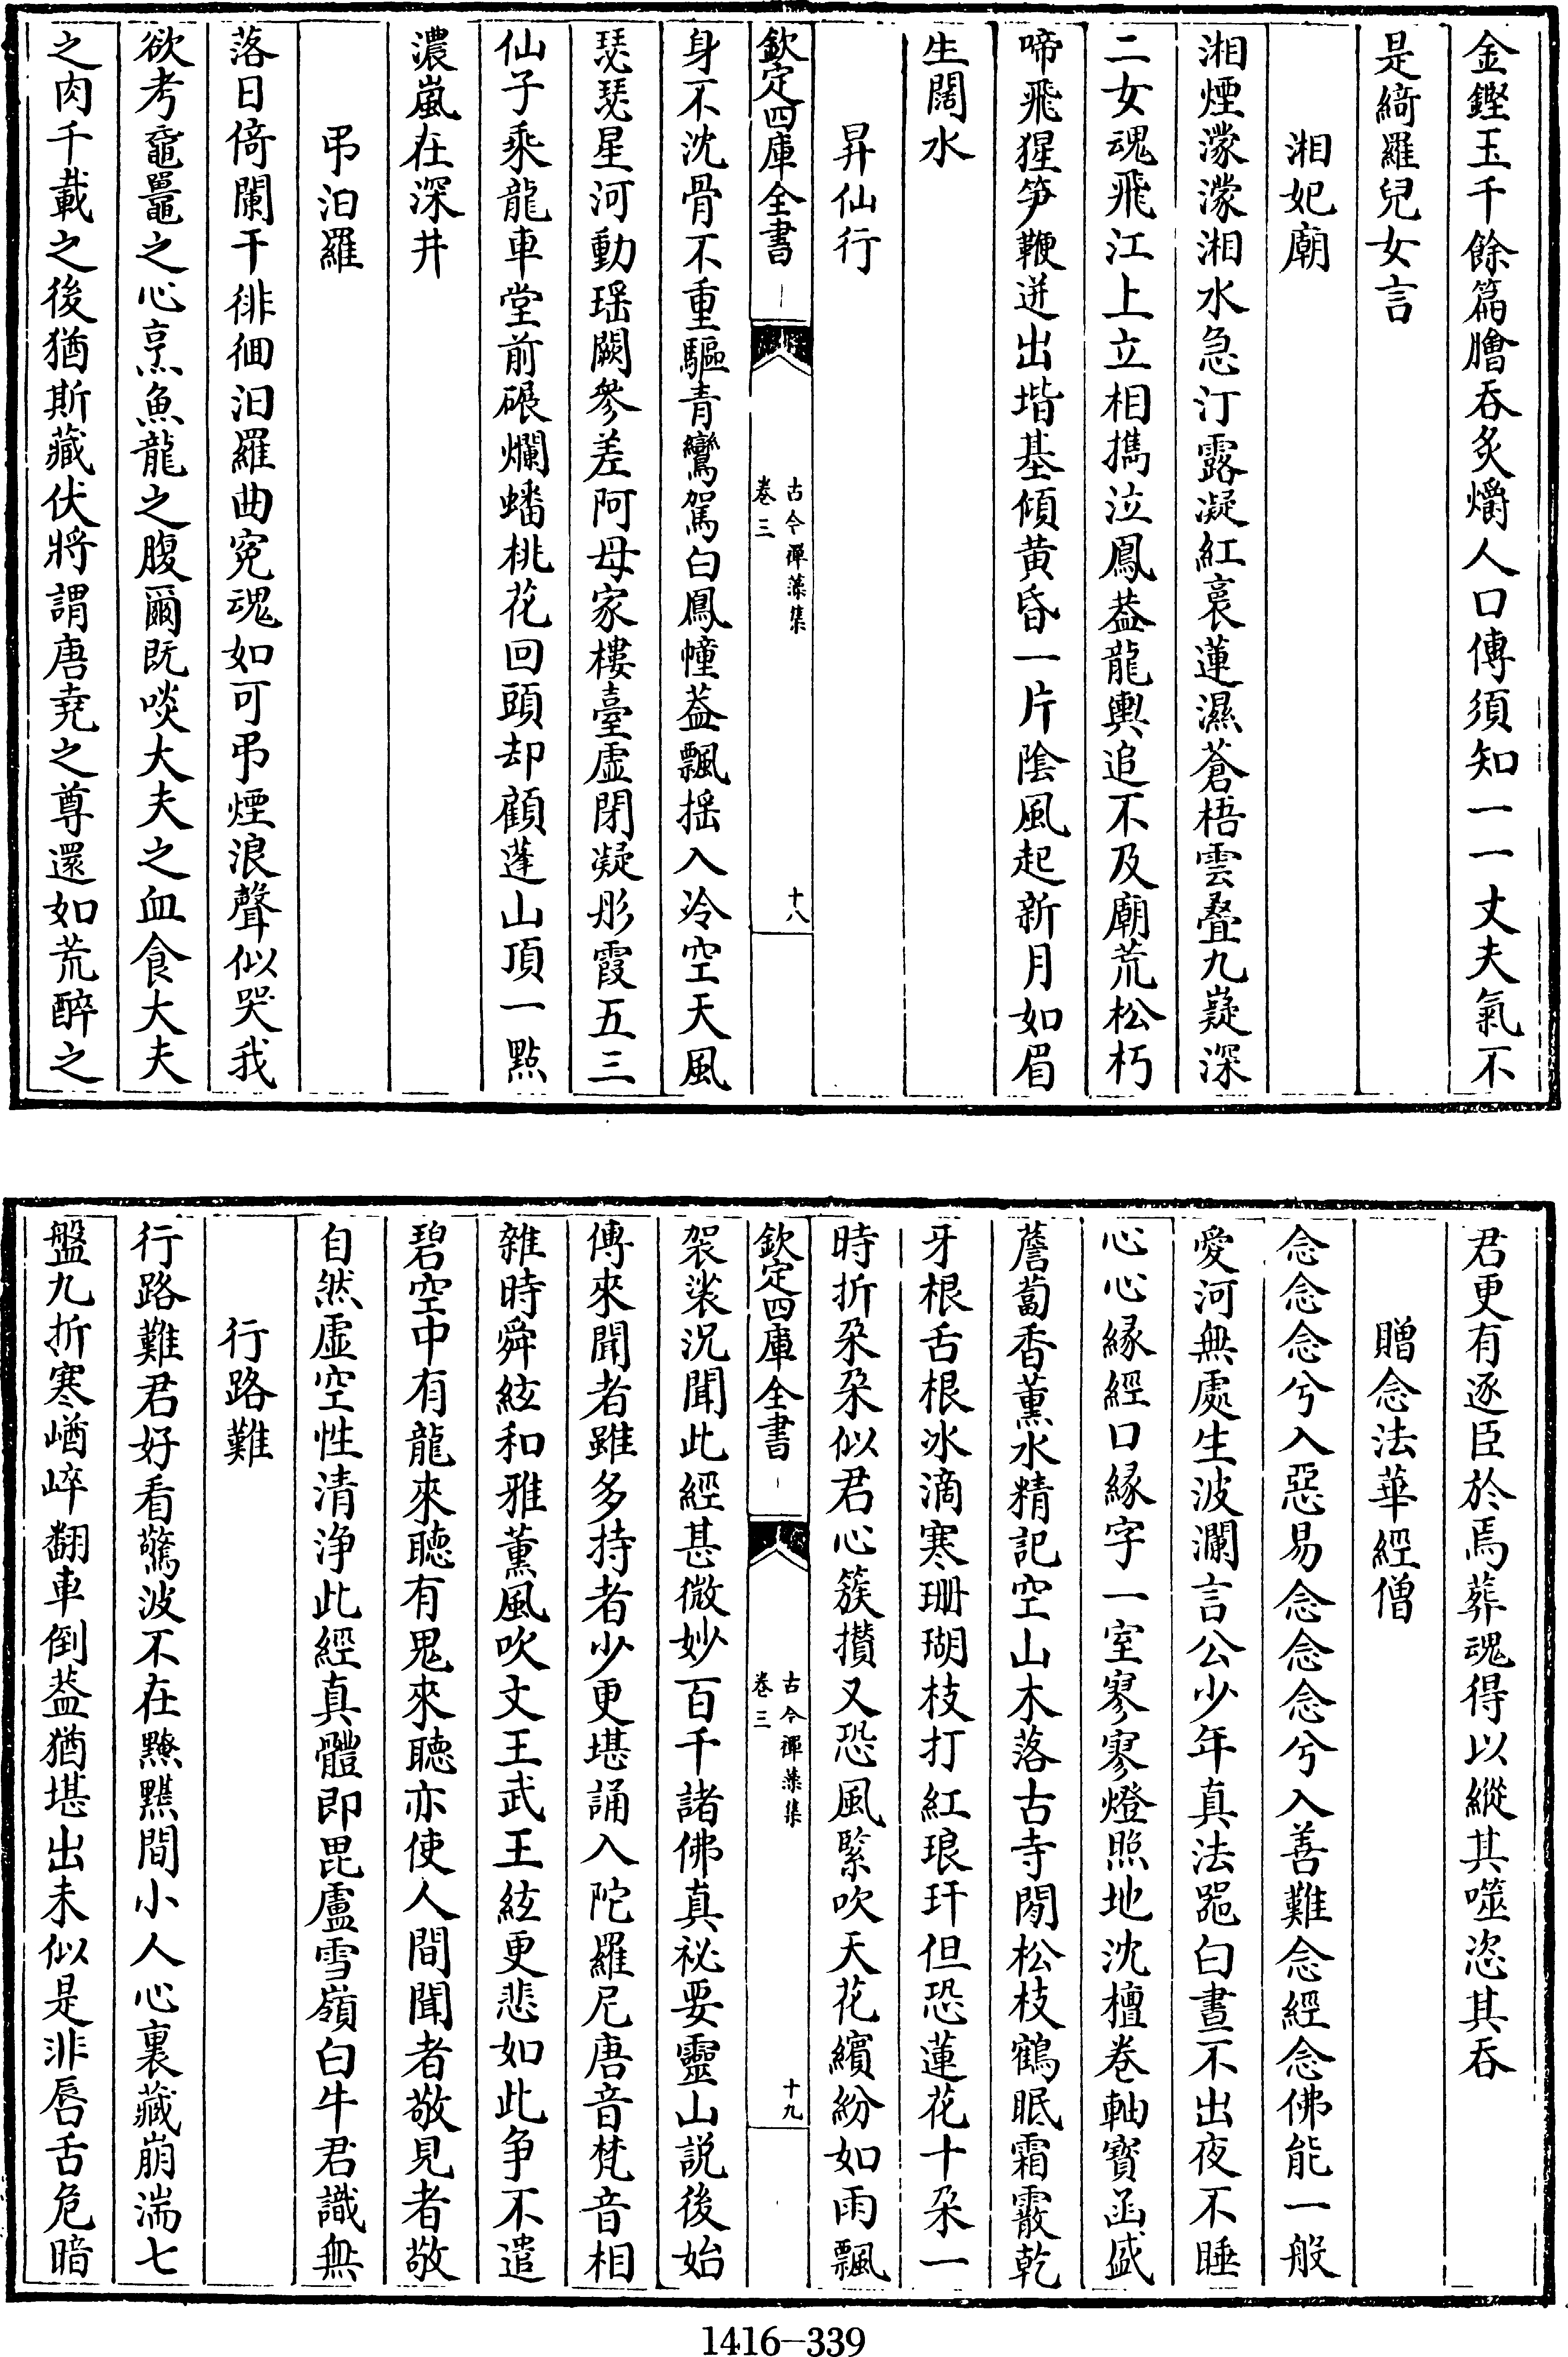 金鏗玉千餘篇膾吞炙嚼人口傳須知一一丈夫氣不
是綺羅兒女言
湘妃廟
湘煙濛濛湘水急汀露凝紅裛蓮濕蒼梧雲疊九嶷深
二女魂飛江上立相擕泣鳳葢龍輿追不及廟荒松朽
啼飛猩笋鞭迸出堦基傾黄昏一片陰風起新月如眉
生闊水
昇仙行
欽定四庫全書
古今禪藻集
卷三
十八
身不沈骨不重驅青鸞駕白鳳幢葢飄揺入冷空天風
瑟瑟星河動瑶闕參差阿母家樓臺虚閉凝彤霞五三
仙子乘龍車堂前碾爛蟠桃花回頭却顧蓬山頂一點
濃嵐在深井
弔汨羅
落日倚闌干徘徊汨羅曲寃魂如可弔煙浪聲似哭我
欲考黿鼉之心烹魚龍之腹爾既啖大夫之血食大夫
之肉千載之後猶斯藏伏將謂唐堯之尊還如荒醉之
君更有逐臣於焉葬魂得以縱其噬恣其吞
贈念法華經僧
念念念兮入惡易念念念兮入善難念經念佛能一般
愛河無處生波瀾言公少年真法噐白晝不出夜不睡
心心緣經口緣字一室寥寥燈照地沈檀卷軸寳函盛
薝蔔香薰水精記空山木落古寺閒松枝鶴眠霜霰乾
牙根舌根冰滴寒珊瑚枝打紅琅玕但恐蓮花十朶一
時折朶朶似君心簇攅又恐風緊吹天花繽紛如雨飄
欽定四庫全書
古今禪藻集
卷三
十九
袈裟況聞此經甚微妙百千諸佛真祕要靈山説後始
傳來聞者雖多持者少更堪誦入陀羅尼唐音梵音相
雜時舜絃和雅薫風吹文王武王絃更悲如此争不遣
碧空中有龍來聽有鬼來聽亦使人間聞者敬見者敬
自然虚空性清浄此經真體即毘盧雪嶺白牛君識無
行路難
行路難君好看驚波不在黤黮間小人心裏藏崩湍七
盤九折寒崷崪翻車倒葢猶堪出未似是非唇舌危暗
1416-339